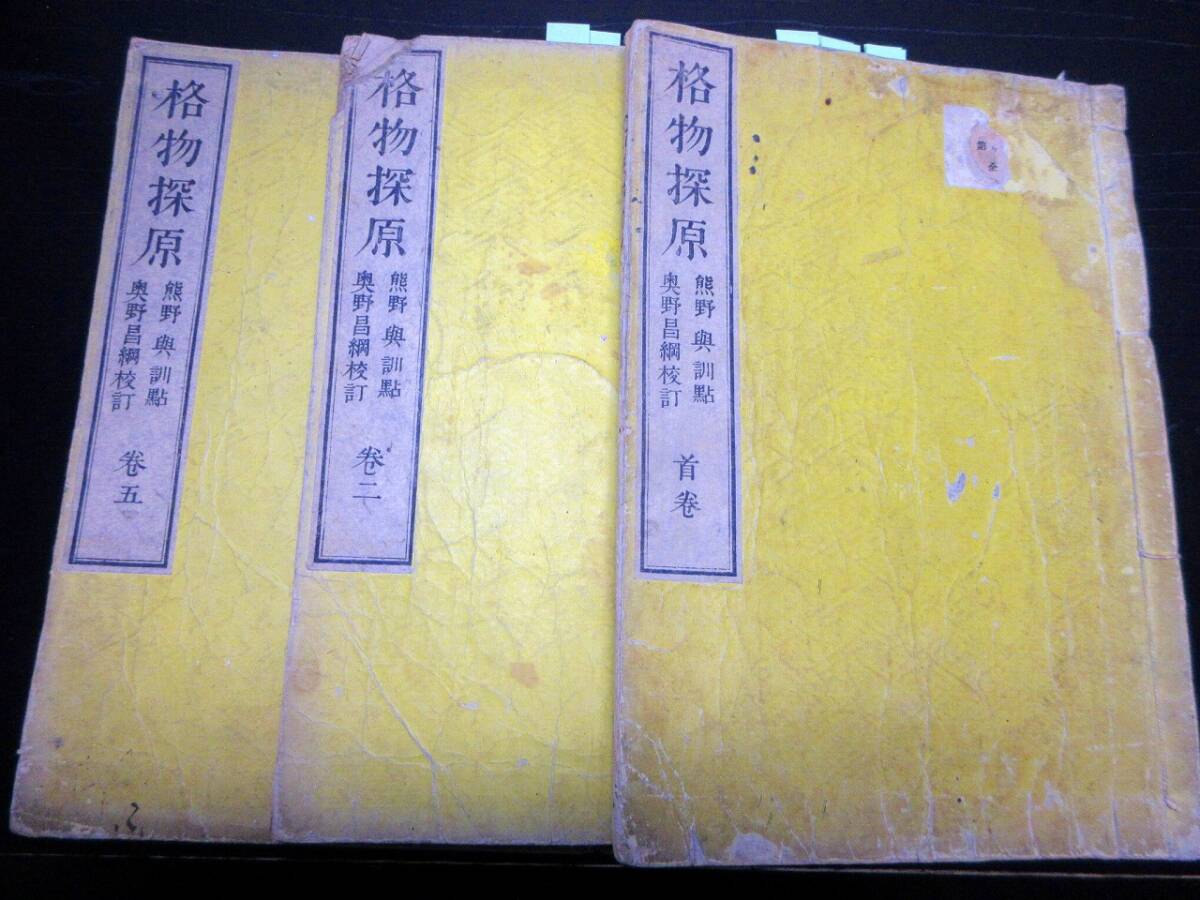 格物探原
熊野與訓點
奥野昌綱校訂
首卷
第
格物探原
熊野與訓點
奥野昌綱校訂
卷二
格物探原
熊野與訓點
奥野昌綱校訂
卷五